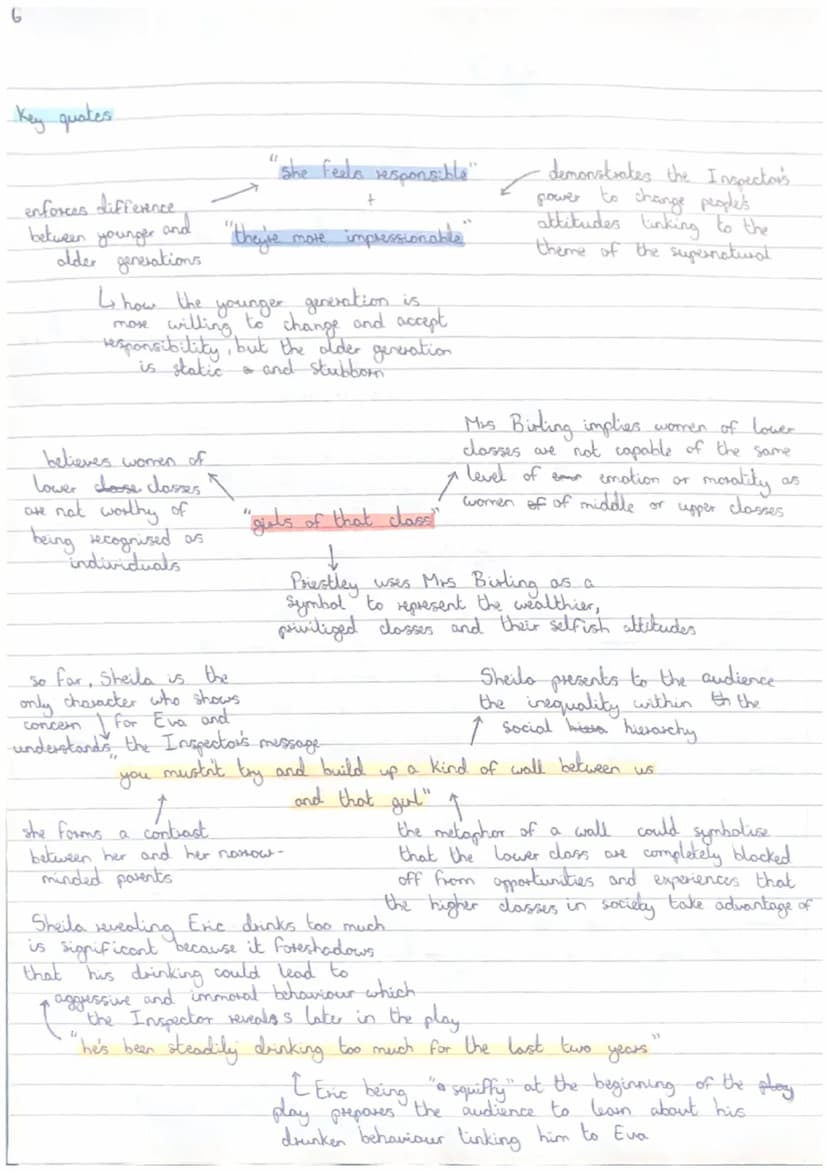 6
Key quotes
"she feels responsible"
+
"they're more impressionable"
enforces difference
between younger and
older generations
demonstrates the Inspector's
power to change people's
attitudes linking to the
theme of the supernatural
↳ how the younger generation is
more willing to change and accept
responsibility, but the older generation
is static and stubborn
believes women of
lower classes
are not worthy of
being recognised as
individuals
Mrs Birling implies women of lower
classes are not capable of the same
level of emotion or morality as
women of middle or upper classes
"girls of that class"
Priestley uses Mrs Birling as a
symbol to represent the wealthier,
priviliged classes and their selfish attitudes
so far, Sheila is the
only character who shows
concern for Eva and
understands the Inspector's message
Sheila presents to the audience
the inequality within the
social hierarchy
"you mustn't try and build up a kind of wall between us
and that girl"
she forms a contrast
between her and her narrow-
minded parents
the metaphor of a wall could symbolise
that the lower class are completely blocked
off from opportunities and experiences that
the higher classes in society take advantage of
Sheila revealing Eric drinks too much
is significant because it foreshadows
that his drinking could lead to
aggressive and immoral behaviour which
the Inspector reveals s later in the play
"he's been steadily drinking too much for the last two years"
Eric being "a squiffy" at the beginning of the play
play prepares the audience to learn about his
drunken behaviour linking him to Eva